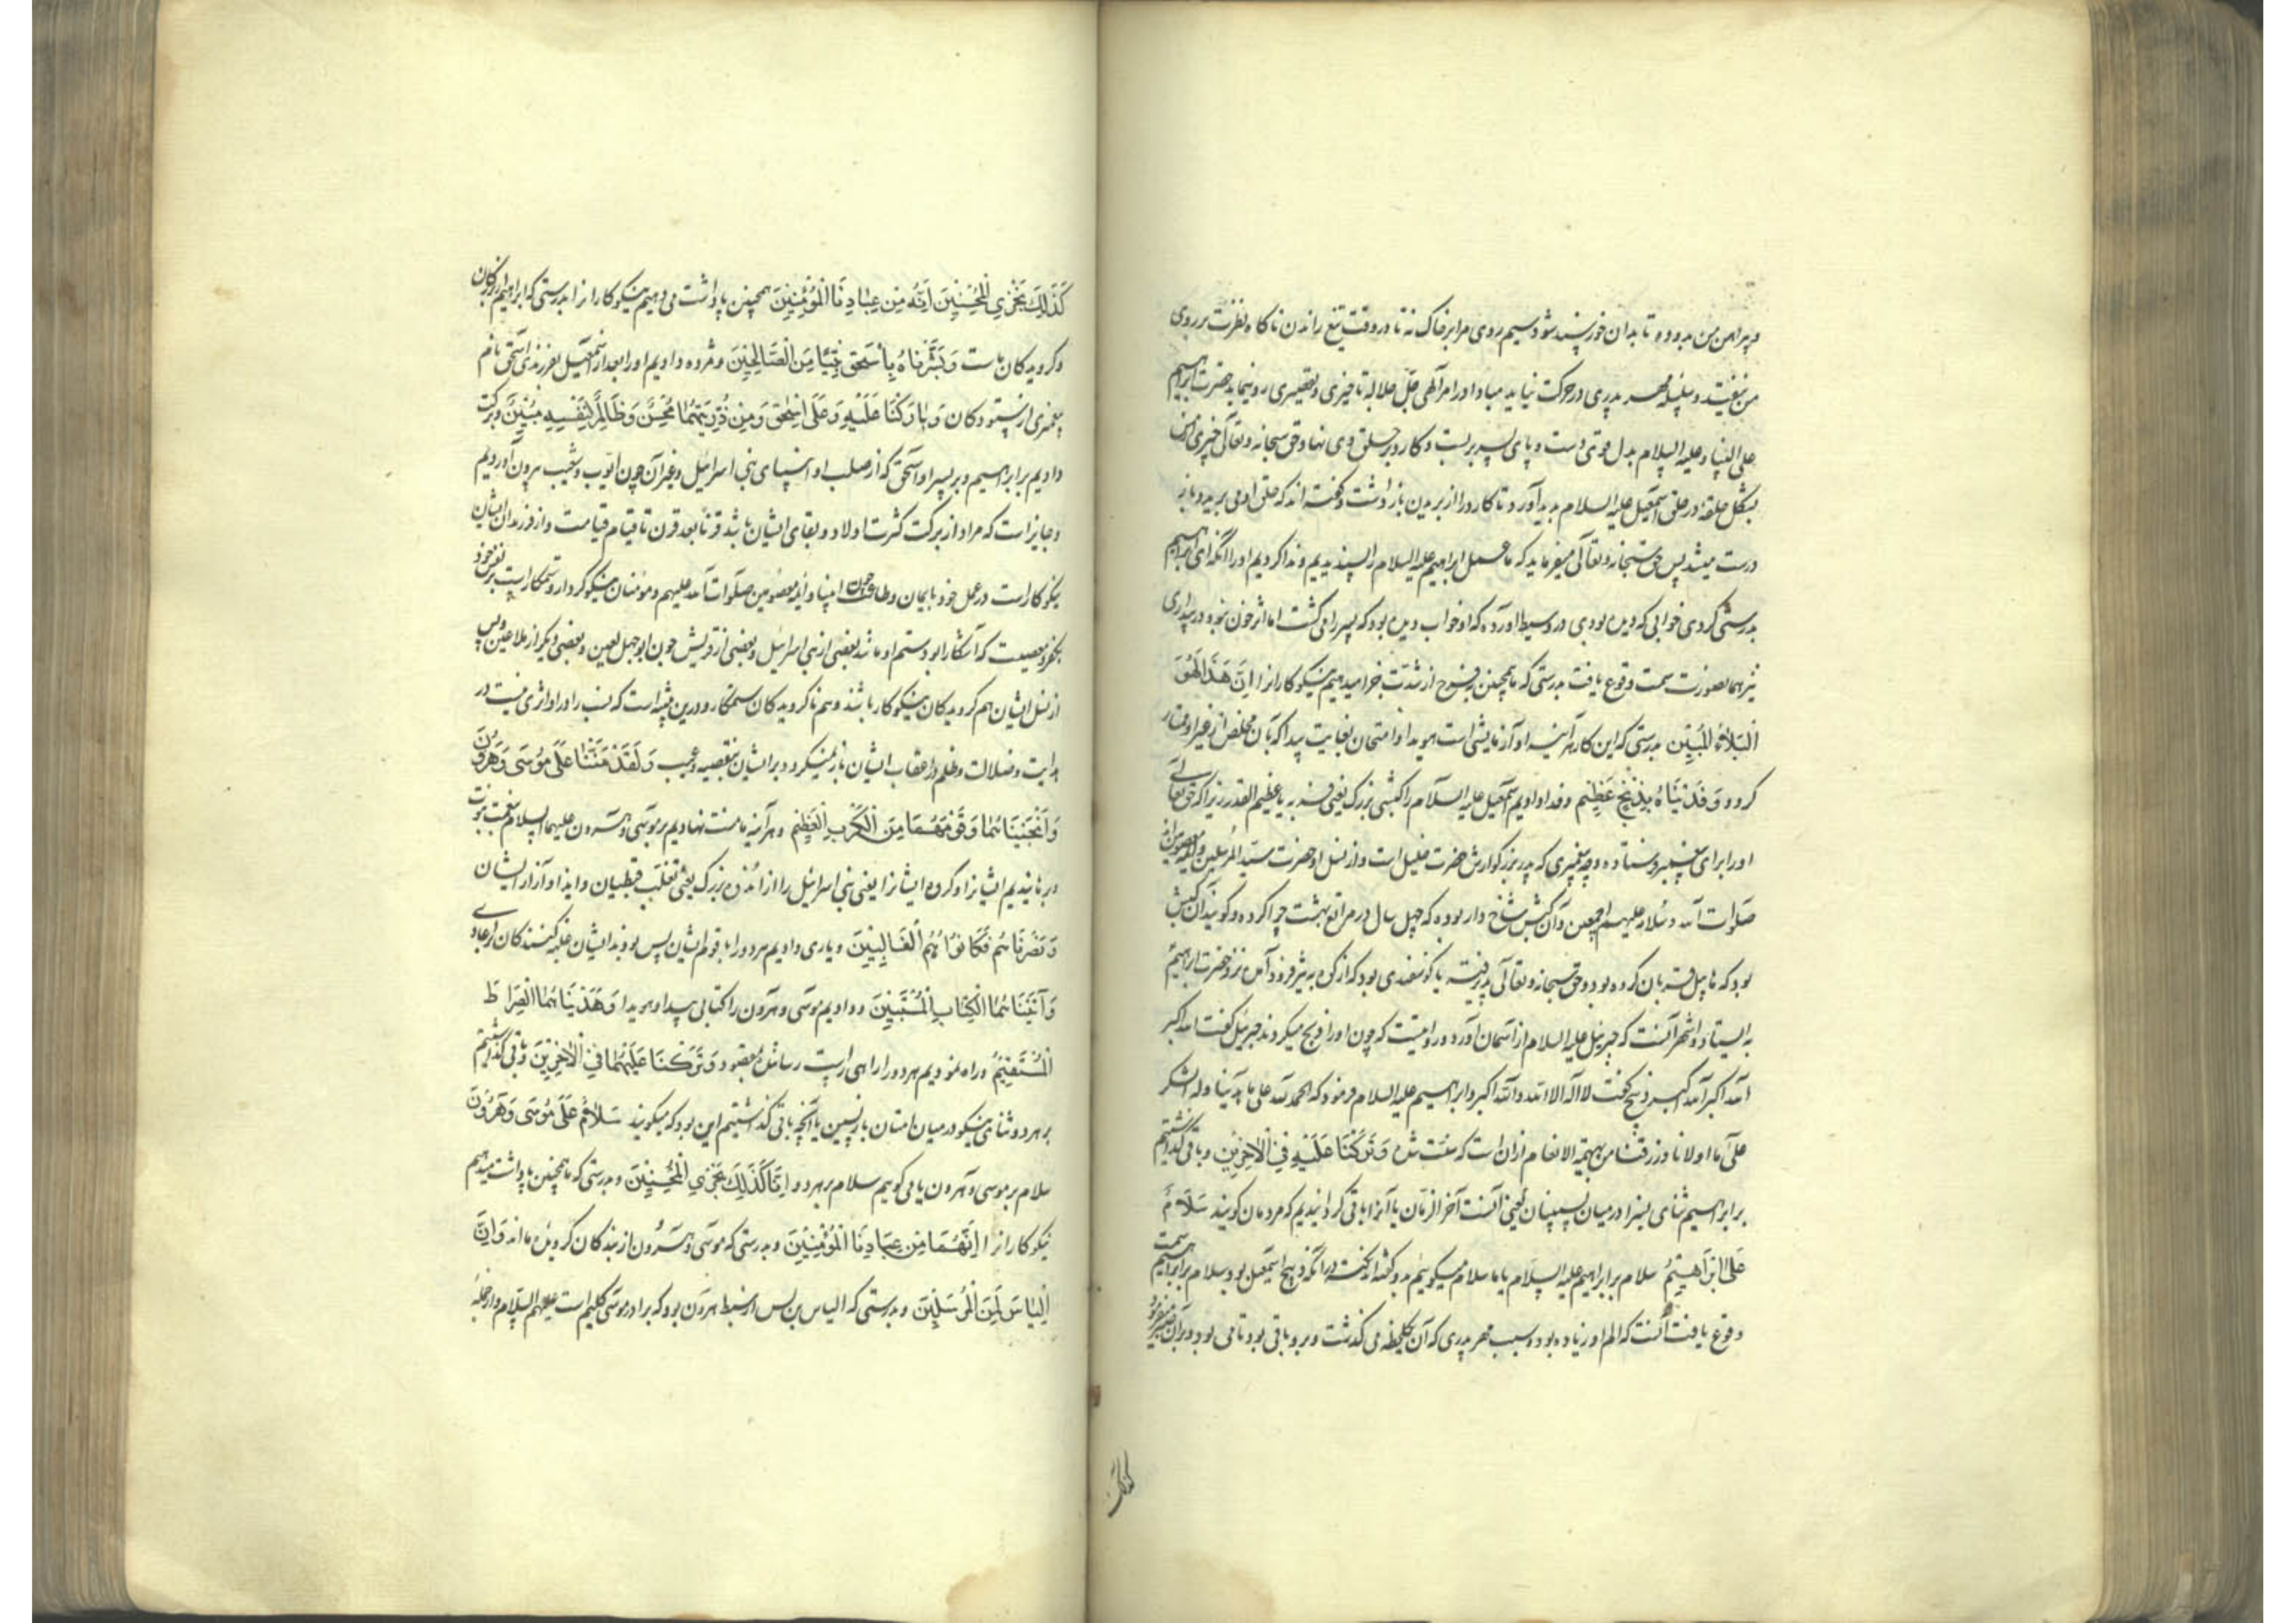 و پیراهن من بدو ده تا بدان خورسند شود سیم روی مرا بر خاک نه تا در وقت تیغ راندن ناکاه نظرت بر روی
من نیفتد و سلسله مهر پدری در حرکت نیاید مبادا در امر آلهی جل جلاله تاخیری و تقصیری رو نماید حضرت ابراهیم
علی نبینا و علیه السلام بدل قوی دست و پای پسر بربست و کارد بر حلق وی نهاد حق سبحانه و تعالی
بشکل حلقه در حلق اسمعیل علیه السلام پدید آورد تا کارد را از بریدن باز داشت و کفته اند که حلق او می برید و باز
درست میشد پس حق سبحانه و تعالی میفرماید که ما عمل ابراهیم علیه السلام را پسندیدیم و ندا کردیم او را انکه ای ابراهیم
بدرستی کردی خوابی که دیده بودی در وسیط آورده که او خواب دیده بود که پسر را می کشت اما اثر خون نبود در بیداری
نیز بهمان صورت سمت وقوع یافت بدرستی که ما همچنین از شدت جزا میدهیم نیکوکارانرا اِنَّ هَذَا لَهُوَ
الْبَلاءُ الْمُبِین بدرستی که این کار هر آینه او آزمایشی است هویدا و امتحان بغایت پیدا که بآن مخلص از غیر او ممتاز
کردد وَفَدَيْنَاهُ بِذِبْحٍ عَظِيمٍ و فدا دادیم اسمعیل علیه السلام را کبشی بزرک یعنی فربه یا عظیم القدر زیرا که حق تعالی
او را برای پیغمبر فرستاده و چه پیغمبری که پدر بزرکوارش حضرت خلیل است و از نسل او حضرت سید المرسلین و ائمه معصومین اند
صلوات الله و سلامه علیهم اجمعین و آن کبش شاخ دار بوده که چهل سال در مراتع بهشت چرا کرده و کویند آن کبش
بود که هابیل قربان کرده بود و حق سبحانه و تعالی پذیرفته یا کوسفندی بود که از کوه ثبیر فرود آمده نزد حضرت ابراهیم
بایستاد و اشهر آنست که جبرئیل علیه السلام از آسمان آورد و روایتست که چون او را ذبح میکردند جبرئیل کفت الله اکبر
الله اکبر الله اکبر و ذبیح کفت لا اله الا الله و الله اکبر و ابراهیم علیه السلام فرمود که الحمد لله علی ما هدینا و له الشکر
علی ما اولانا و رزقنا من بهیمة الانعام ازان است که سنت شده وَتَرَكْنَا عَلَيْهِ فِي الْآخِرِينَ و باقی کذاشتیم
بر ابراهیم ثنای بسزا در میان پسینیان یعنی امت آخر الزمان یا آنرا باقی کردانیدیم که مردمان کویند سَلَامٌ
عَلَى اِبْرَاهِيمَ سلام بر ابراهیم علیه السلام یا ما سلام میکوییم بدو کفته اند نکته در آنکه ذبح اسمعیل بود و سلام بر ابراهیم سمت
وقوع یافت آنست که الم او زیاده بود بسبب مهر پدری که آن یک لحظه می کذشت و بر او باقی بود تا می بود و بر آن صبر فرمود
کذلک
كَذَلِكَ نَجْزِي الْمُحْسِنِينَ اِنَّهُ مِنْ عِبَادِنَا الْمُؤْمِنِينَ همچنین پاداشت می دهیم نیکوکارانرا بدرستی که ابراهیم از بندکان
و کرویدکان ماست وَبَشَّرْنَاهُ بِإِسْحَقَ نَبِيًّا مِنَ الصَّالِحِينَ و مژده دادیم او را بعد از اسمعیل بفرزندی اسحق نام
پیغمبری از ستودکان وَبَارَكْنَا عَلَيْهِ وَعَلَى اِسْحَقَ وَمِنْ ذُرِّيَّتِهِمَا مُحْسِنٌ وَظَالِمٌ لِنَفْسِهِ مُبِينٌ و برکت
دادیم بر ابراهیم و بر پسر او اسحق که از صلب او انبیای بنی اسرائیل و غیر آن چون ایوب و شعیب بیرون آوردیم
و جایز است که مراد از برکت کثرت اولاد و بقای ایشان باشد قرنا بعد قرن تا قیام قیامت و از فرزندان ایشان
نیکوکار است در عمل خود بایمان و طاعت چون انبیا و ائمه معصومین صلوات الله علیهم و مؤمنان نیکو کردار و ستمکار است بر نفس خود
بکفر و معصیت که آشکارا بود ستم او مانند بعضی از بنی اسرائیل و بعضی از قریش چون ابوجهل لعین و بعضی دیکر از ملاعین پس
از نسل ایشان هم کرویدکان نیکوکار باشند و هم ناکرویدکان ستمکار و درین تنبیه است که نسب را اثری نیست در
هدایت و ضلالت و ظلم در اعقاب ایشان باز نمیکردد بر ایشان بنقیصه و عیب وَلَقَدْ مَنَنَّا عَلَى مُوسَى وَهَرُونَ
وَأَنْجَيْنَاهُمَا وَقَوْمَهُمَا مِنَ الْكَرْبِ الْعَظِيمِ و هر آینه ما منت نهادیم بر موسی و هرون علیهما السلام بنعمت نبوت
و برهانیدیم ایشانرا و کروه ایشانرا یعنی بنی اسرائیل را از اندوه بزرک یعنی تغلب قبطیان و ایذا و آزار ایشان
وَنَصَرْنَاهُمْ فَكَانُوا هُمُ الْغَالِبِينَ و یاری دادیم هر دو را با قوم ایشان پس بودند ایشان غلبه کنندکان بر اعادی
وَآتَيْنَاهُمَا الْكِتَابَ الْمُسْتَبِينَ و دادیم موسی و هرون را کتابی پیدا و هویدا وَهَدَيْنَاهُمَا الصِّرَاطَ
الْمُسْتَقِيمَ و راه نمودیم هر دو را راهی راست رساننده بمقصود وَتَرَكْنَا عَلَيْهِمَا فِي الْآخِرِينَ و باقی کذاشتیم
بر هر دو ثنای نیکو در میان امتان باز پسین یا آنچه باقی کذاشتیم این بود که میکویند سَلَامٌ عَلَى مُوسَى وَهَرُونَ
سلام بر موسی و هرون یا می کوییم سلام بر هر دو اِنَّا كَذَلِكَ نَجْزِي الْمُحْسِنِينَ و بدرستی که ما همچنین پاداشت میدهیم
نیکوکارانرا اِنَّهُمَا مِنْ عِبَادِنَا الْمُؤْمِنِينَ و بدرستی که موسی و هرون از بندکان کرویده ما اند وَاِنَّ
اِلْيَاسَ لَمِنَ الْمُرْسَلِينَ و بدرستی که الیاس بن یس از سبط هرون بود که برادر موسی کلیم است علیهم السلام و از جمله